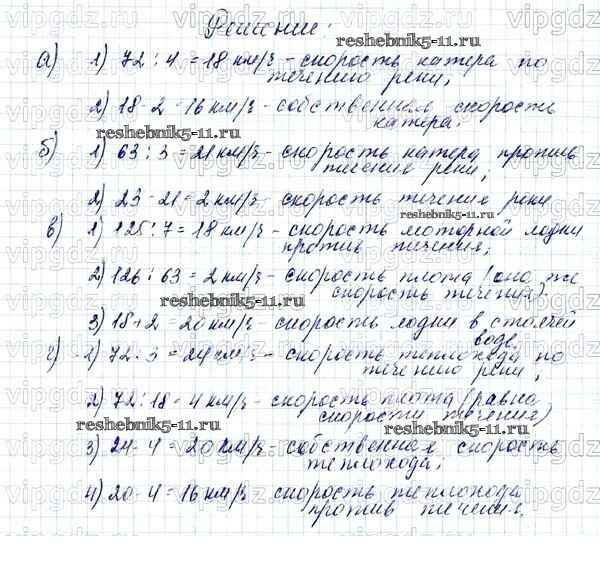 Решение:
reshebnik5-11.ru
а) 1) 72 : 4 = 18 км/ч - скорость катера по
течению реки;
2) 18 - 2 = 16 км/ч - собственная скорость
катера.
reshebnik5-11.ru
б) 1) 63 : 3 = 21 км/ч - скорость катера против
течения реки;
2) 23 - 21 = 2 км/ч - скорость течения реки
reshebnik5-11.ru
в) 1) 126 : 7 = 18 км/ч - скорость моторной лодки
против течения;
2) 126 : 63 = 2 км/ч - скорость плота (она же
скорость течения)
reshebnik5-11.ru
3) 18 + 2 = 20 км/ч - скорость лодки в стоячей
воде.
г) 1) 72 : 3 = 24 км/ч - скорость теплохода по
течению реки;
2) 72 : 18 = 4 км/ч - скорость плота (равна
скорости течения)
reshebnik5-11.ru
reshebnik5-11.ru
3) 24 - 4 = 20 км/ч - собственная скорость
теплохода;
4) 20 - 4 = 16 км/ч скорость теплохода
против течения.
vipgdz.ru